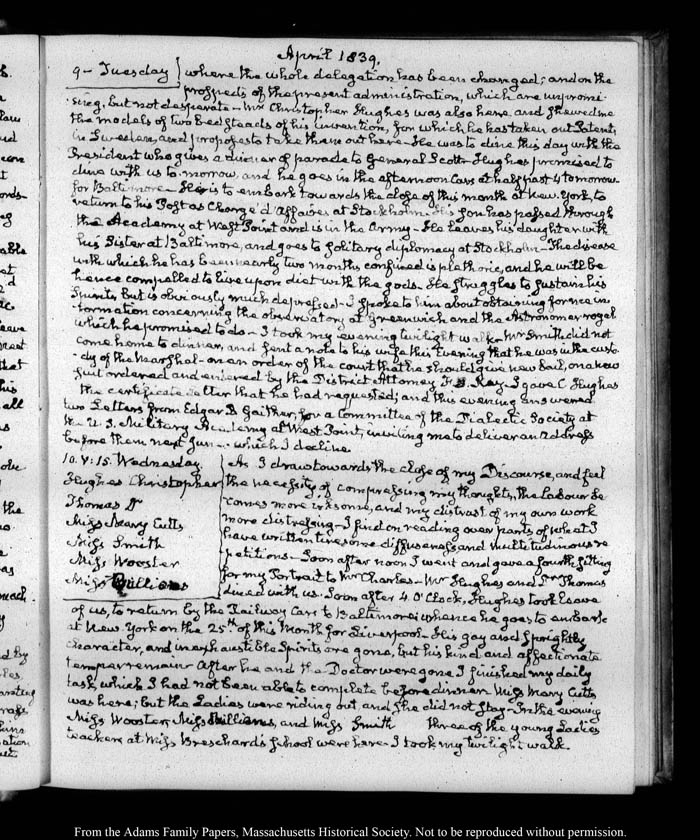 April 1839.
9 - Tuesday } where the whole delegation has been changed; and on the
prospects of the present administration, which are unpromi-
sing, but not desperate - Mr Christopher Hughes was also here, and shewed me
the models of two bedsteads of his invention, for which he has taken out Patent,
in Sweden, and proposes to take them out here - He was to dine this day with the
President who gives a dinner of parade to General Scott - Hughes promised to
dine with us to-morrow, and he goes in the afternoon Cars at half past 4 to morrow
for Baltimore - He is to embark towards the close of this month at New-York, to
return to his Post as Chargé d'Affaires at Stockholm - His son has passed through
the Academy at West Point and is in the Army - He leaves his daughter with
his Sister at Baltimore, and goes to solitary diplomacy at Stockholm - The disease
with which he has been nearly two months confined is plethoric, and he will be
hence compelled to live upon diet with the gods. He struggles to sustain his
Spirits but is obviously much depressed - I spoke to him about obtaining for me in-
formation concerning the observatory at Greenwich and the Astronomer royal
which he promised to do - I took my evening twilight walk - Mr Smith did not
come home to dinner, and sent a note to his wife this Evening that he was in the custo-
dy of the Marshal - on an order of the court that he should give new bail, on a new
suit ordered and entered by the District Attorney F. S. Key. I gave C Hughes
the certificate letter that he had requested; and this evening answered
two Letters from Edgar B Gaither, for a Committee of the Dialectic Society at
the U. S. Military Academy at West Point, inviting me to deliver an address
before them next June - which I decline.
10. V: 15. Wednesday.
Hughes Christopher
Thomas Dr
Miss Mary Cutts
Miss Smith
Miss Wooster
Miss Williams
As I draw towards the close of my Discourse, and feel
the necessity of compressing my thoughts, the Labour be-
comes more irksome, and my distrust of my own work
more distressing - I find on reading over parts of what I
have written tiresome diffuseness and multitudinous re-
petitions - Soon after noon I went and gave a fourth sitting
for my Portrait to Mr Charles - Mr Hughes and Dr Thomas
dined with us. Soon after 4 O'Clock, Hughes took leave
of us, to return by the Railway Cars to Baltimore; whence he goes to embark
at New York on the 25th of this Month for Liverpool - His gay and sprightly
character, and inexhaustible Spirits are gone, but his kind and affectionate
temper remain. After he and the Doctor were gone I finished my daily
task, which I had not been able to complete before dinner. Miss Mary Cutts
was here; but the Ladies were riding out and she did not stay - In the evening
Miss Wooster, Miss Williams, and Miss Smith three of the young Ladies
teachers at Miss Breschard's School were here - I took my twilight walk.
From the Adams Family Papers, Massachusetts Historical Society. Not to be reproduced without permission.